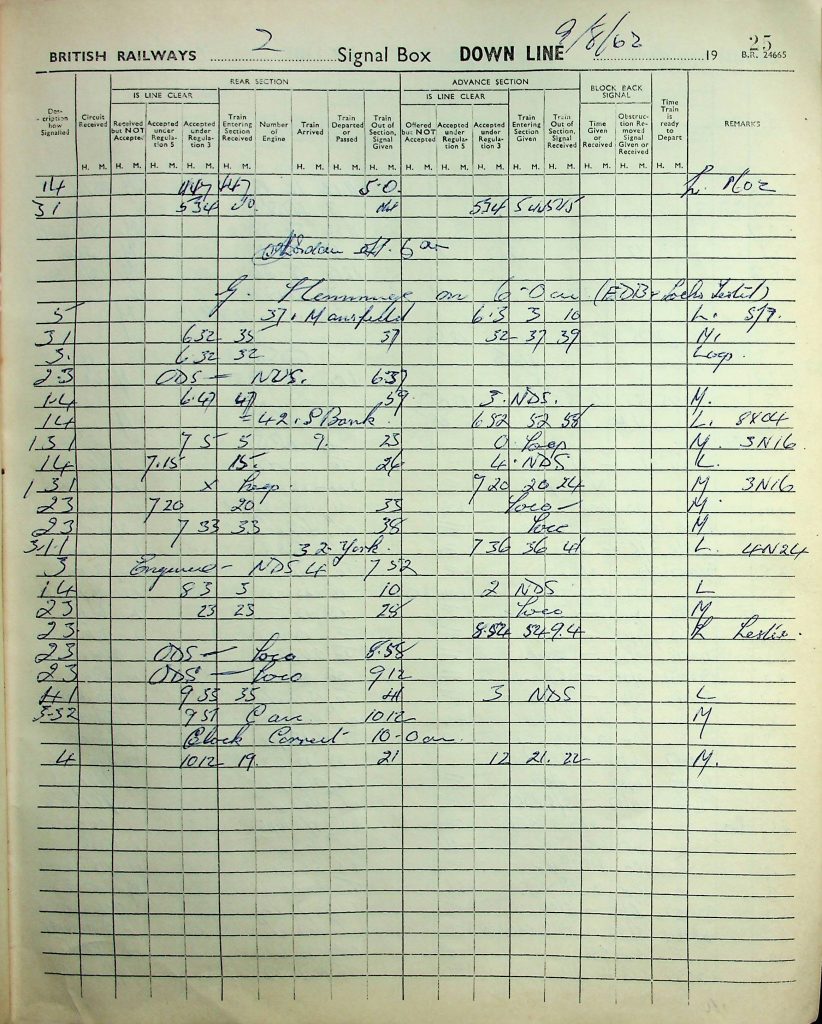 BRITISH RAILWAYS 2 Signal Box DOWN LINE 9/8/62 19 25
B.R. 24665
REAR SECTION ADVANCE SECTION BLOCK BACK SIGNAL
IS LINE CLEAR IS LINE CLEAR
Des-cription how Signalled Circuit Received Received but NOT Accepted Accepted under Regula-tion 5 Accepted under Regula-tion 3 Train Entering Section Received Number of Engine Train Arrived Train Departed or Passed Train Out of Section, Signal Given Offered but NOT Accepted Accepted under Regula-tion 5 Accepted under Regula-tion 3 Train Entering Section Given Train Out of Section, Signal Received Time Given or Received Obstruc-tion Re-moved Signal Given or Received Time Train is ready to Depart REMARKS
H. M. H. M. H. M. H. M. H. M. H. M. H. M. H. M. H. M. H. M. H. M. H. M. H. M. H. M. H. M. H. M. H. M.
14 447 447 5.0 L.
31 534 534
off. 6 am
G. on 6-0 am (EDB - Locks Tested)
5 37. Mansfield 6.3 3 10 L.
31 632 35 37 32 37 39 M.
3. 632 32 Loop.
2-3 ODS — NUS. 6.37
1-4 6.47 47 59 3. NDS. M.
14 42. S Bank 6 52 52 58 L. 8X04
1.31 7 5 5 9. 25 0 Loop M. 3N16
14 7.15 15. 26 4. NDS L.
1 31 x Loop. 7 20 20 24 M 3N16
23 7 20 20 33 Loco - M.
23 7 33 33 38 Loco M
3.1.1 3 2- York. 7 36 36 41 L. 4N24
3 Engine - NDS 4 7 52
14 8 3 3 10 2 NDS L
23 23 23 28 Loco M
23. 8.54 54 9.4 L Leslie.
23 ODS — Loco 8.58
23 ODS — Loco 9 12
41 9 35 35 41 3 NDS L
3-32 9 57 10 12 M
Clock Correct 10-0 am.
4 10 12 19. 21 12 21. 22 M.